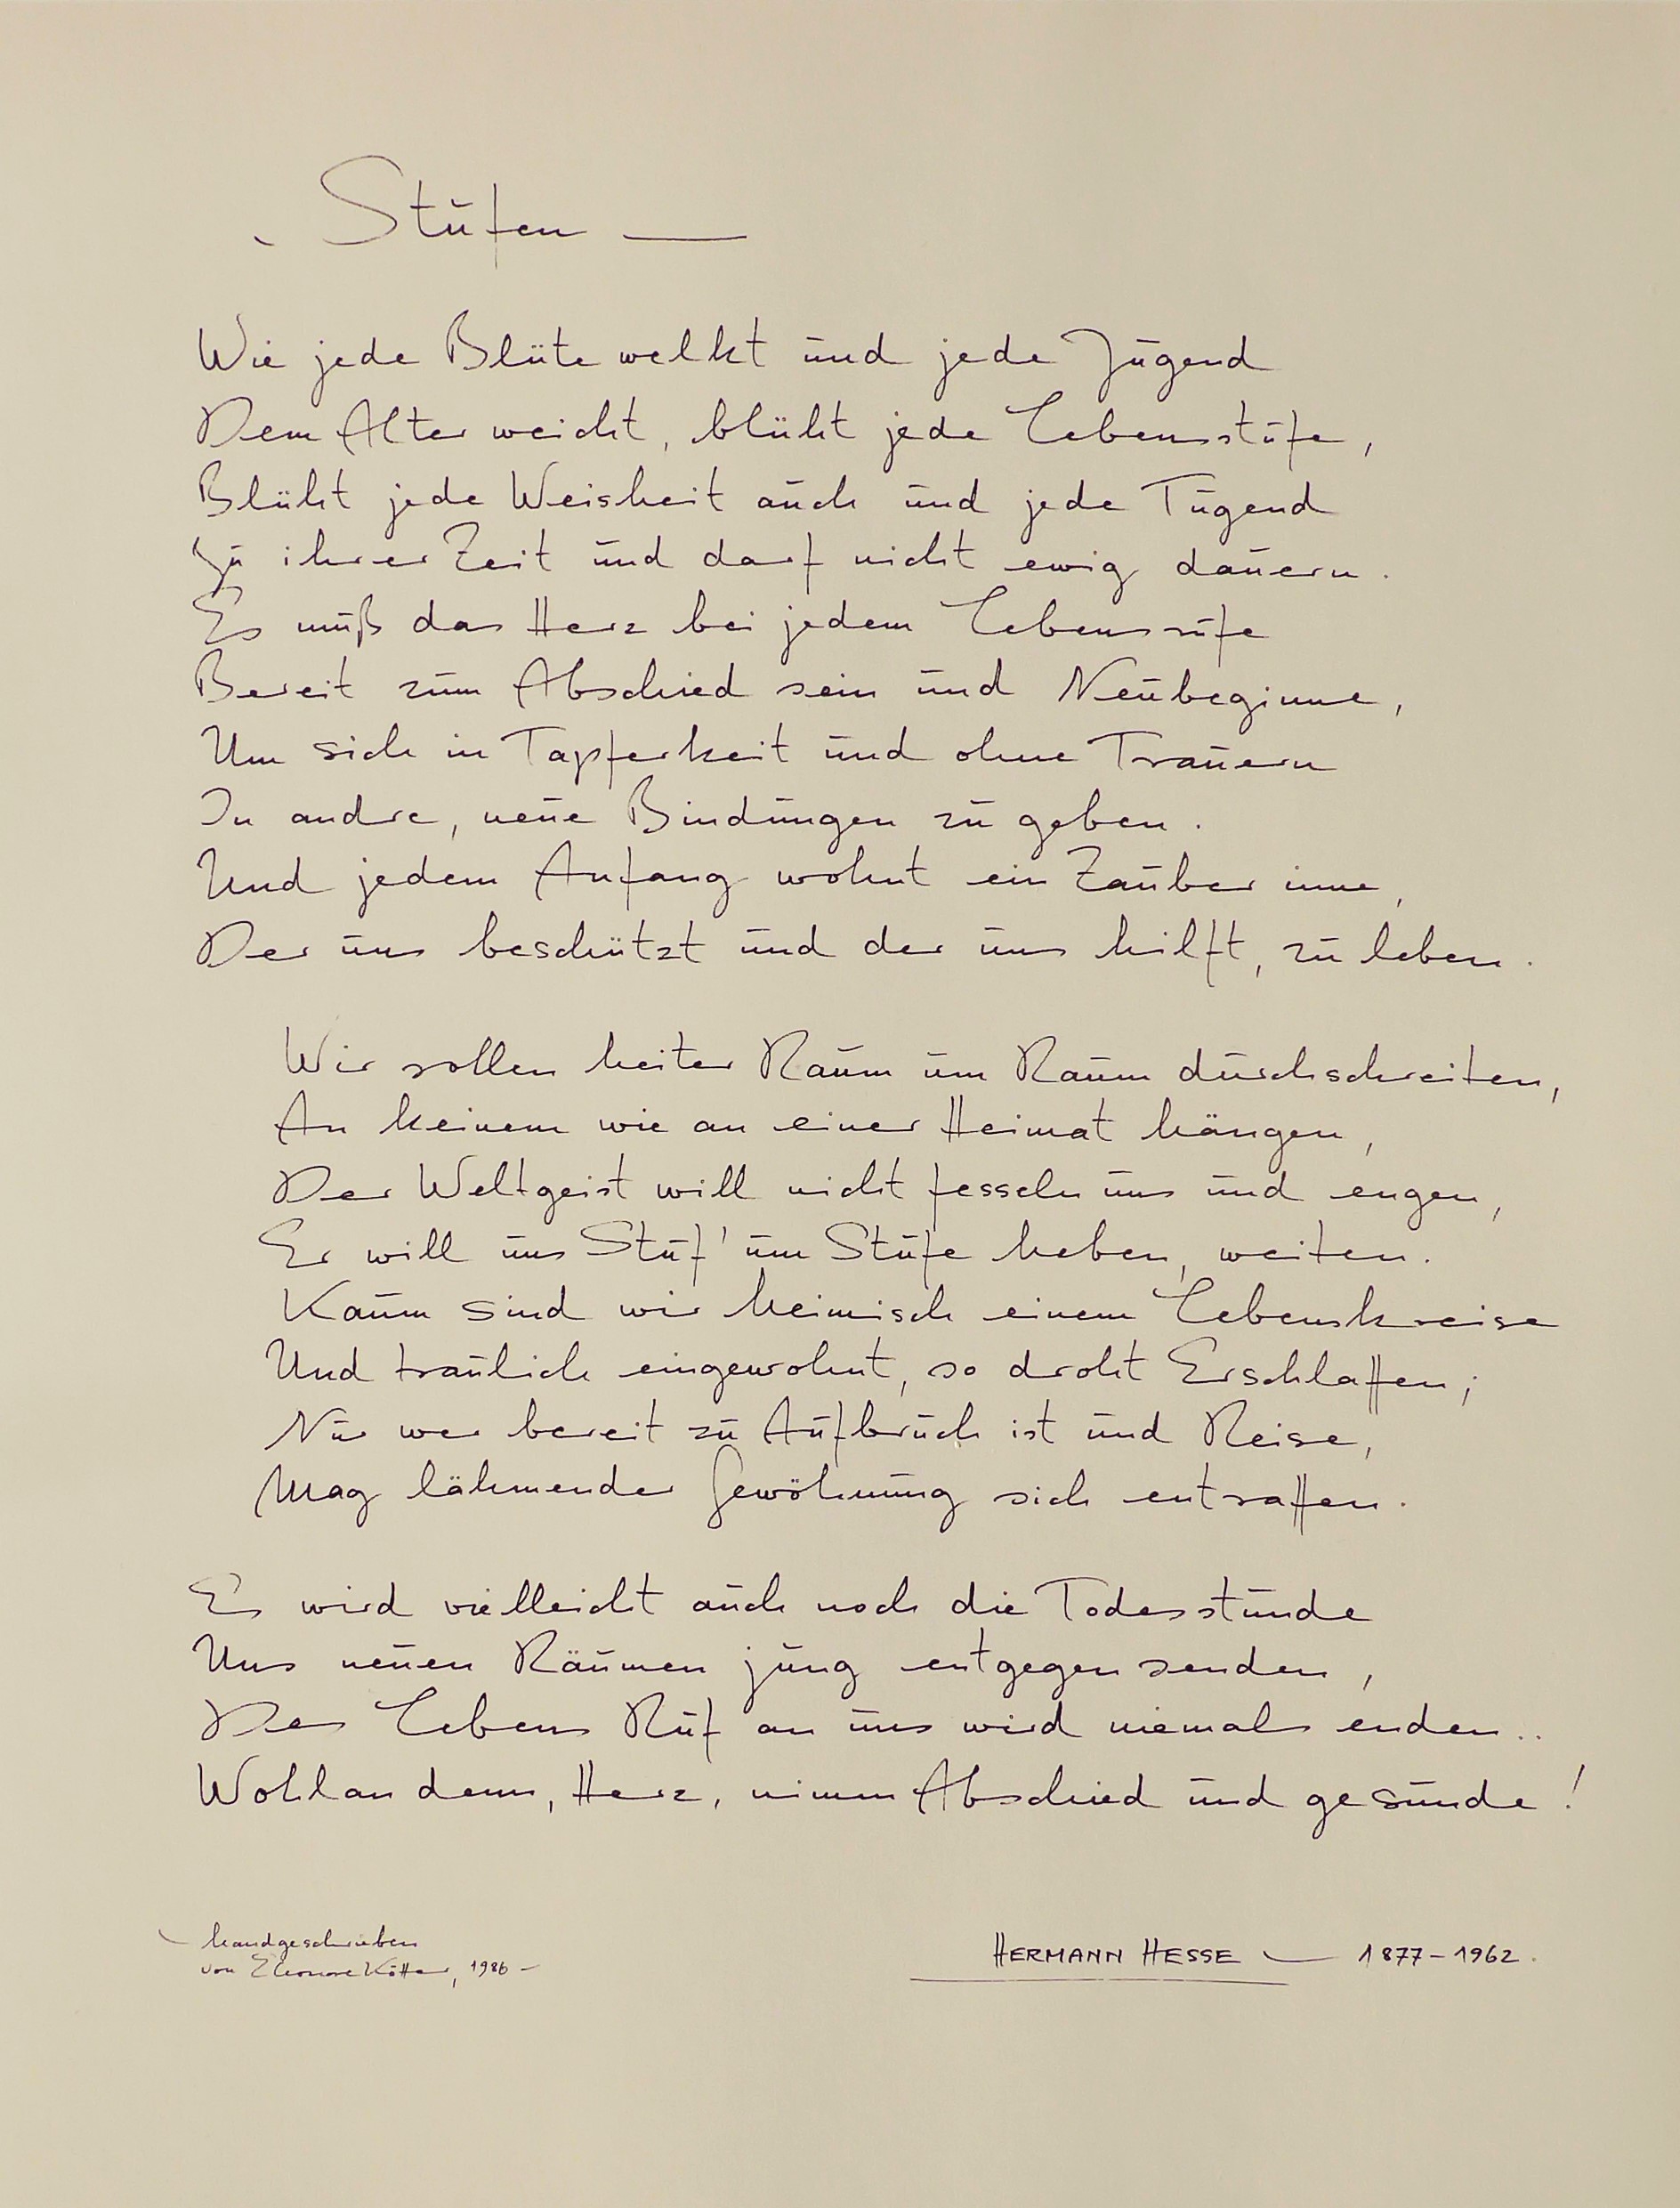 Stufen —
Wie jede Blüte welkt und jede Jugend
Dem Alter weicht, blüht jede Lebensstufe,
Blüht jede Weisheit auch und jede Tugend
Zu ihrer Zeit und darf nicht ewig dauern.
Es muß das Herz bei jedem Lebensrufe
Bereit zum Abschied sein und Neubeginne,
Um sich in Tapferkeit und ohne Trauern
In andre, neue Bindungen zu geben.
Und jedem Anfang wohnt ein Zauber inne,
Der uns beschützt und der uns hilft, zu leben.
Wir sollen heiter Raum um Raum durchschreiten,
An keinem wie an einer Heimat hängen,
Der Weltgeist will nicht fesseln uns und engen,
Er will uns Stuf' um Stufe heben, weiten.
Kaum sind wir heimisch einem Lebenskreise
Und traulich eingewohnt, so droht Erschlaffen;
Nur wer bereit zu Aufbruch ist und Reise,
Mag lähmender Gewöhnung sich entraffen.
Es wird vielleicht auch noch die Todesstunde
Uns neuen Räumen jung entgegen senden,
Des Lebens Ruf an uns wird niemals enden..
Wohlan denn, Herz, nimm Abschied und gesunde!
handgeschrieben
von Eleonore Kötter, 1986 —
HERMANN HESSE — 1877 – 1962.